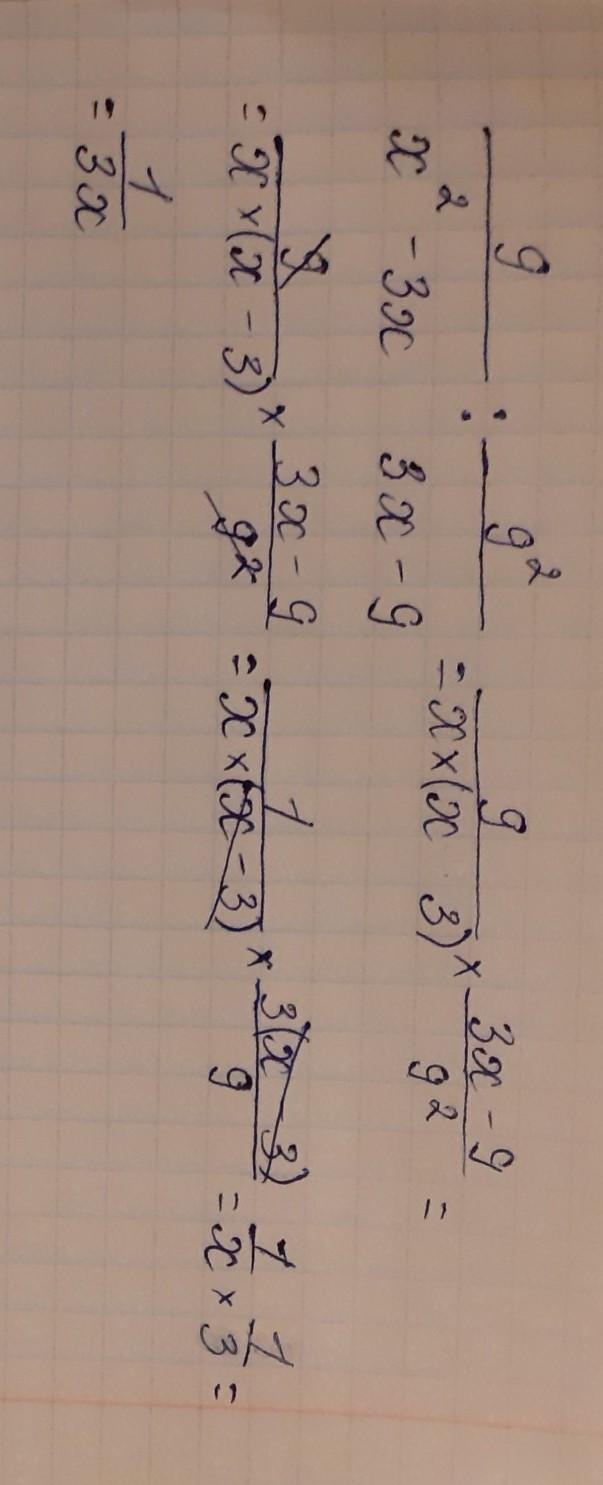 9/(x² - 3x) : 9²/(3x - 9) = 9/(x × (x 3)) × (3x - 9)/9² =
= 9/(x × (x - 3)) × (3x - 9)/9² = 1/(x × (x - 3)) × 3(x - 3)/9 = 1/x × 1/3 =
= 1/3x